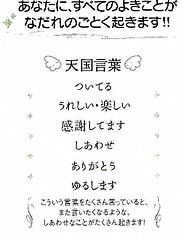 あなたに、すべてのよきことが
なだれのごとく起きます!!
天国言葉
ついてる
うれしい・楽しい
感謝してます
しあわせ
ありがとう
ゆるします
こういう言葉をたくさん言っていると、
また言いたくなるような、
しあわせなことがたくさん起きます!